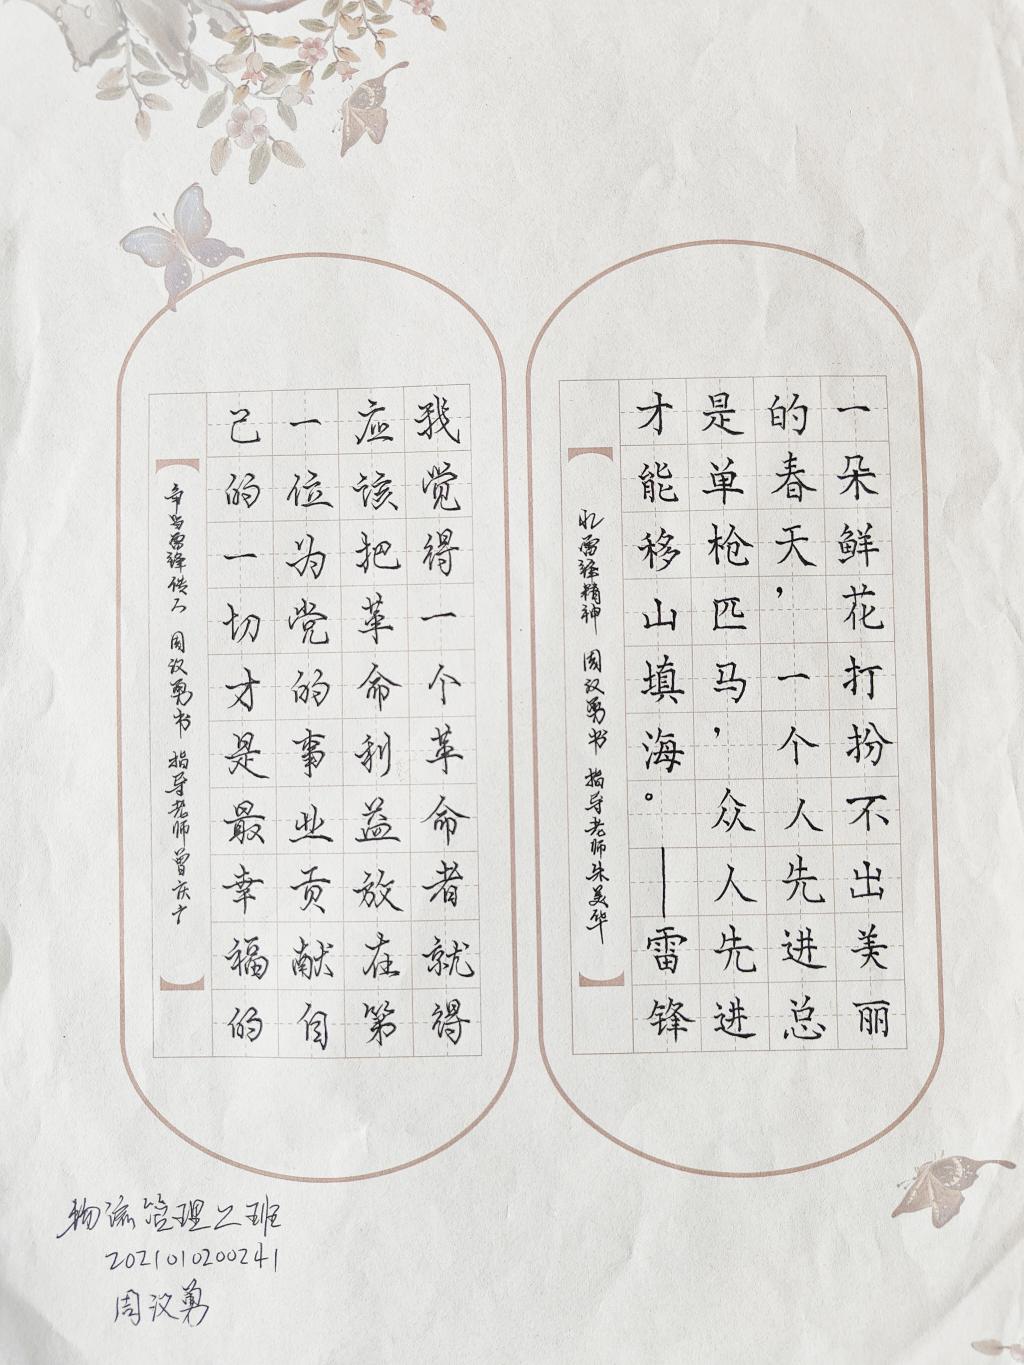 一朵鲜花打扮不出美丽
的春天，一个人先进总
是单枪匹马，众人先进
才能移山填海。—雷锋
忆雷锋精神 周汉勇书 指导老师朱美华
我觉得一个革命者就得
应该把革命利益放在第
一位为党的事业贡献自
己的一切才是最幸福的
争当雷锋传人 周汉勇书 指导老师曾庆
物流管理2班
2021010200241
周汉勇